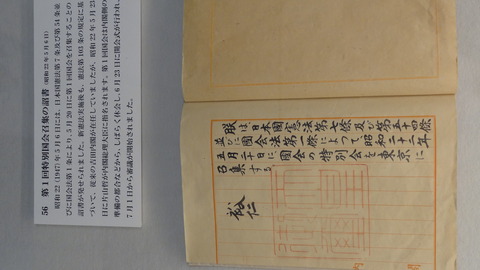 56 第1回特別国会召集の詔書（昭和22年5月6日）
昭和22（1947）年5月6日には、日本国憲法第7条及び第54条並
びに国会法第1条により、5月20日に第1回国会を召集することの
詔書が発せられました。新憲法実施後も、憲法第103条の規定に基
づいて、従来の吉田内閣が在任していましたが、昭和22年5月23
日に片山哲が内閣総理大臣に指名されます。第1回国会は内閣側の
準備の都合などから、しばらく休会し、6月23日に開会式が行われ、
7月1日から審議が開始されました。
朕は、日本國憲法第七條及び第五十四條
並びに國会法第一條によつて、昭和二十二年
五月二十日に、國会の特別会を東京に
召集する。
裕仁